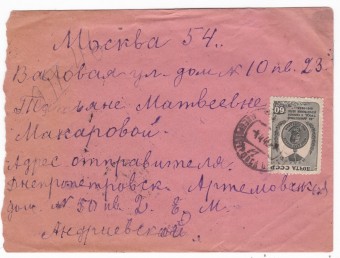 Москва 54..
Валовая ул. дом № 10 кв. 23.
Татьяне Матвеевне
Макаровой.
Адрес отправителя.
Днепропетровск Артемовская
дом. № 50 кв 2. Е. М.
Андриевской
ПОЧТА СССР